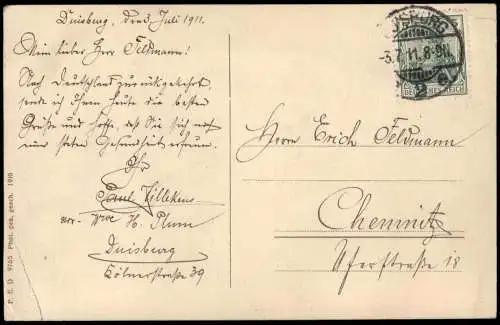 Duisburg, den 3. Juli 1911.
Mein lieber Herr Feldmann!
Nach Deutschland zurückgekehrt,
sende ich Ihnen heute die besten
Grüße und hoffe, daß Sie sich noch
nur guten Gesundheit erfreuen.
Ihr
Paul Willekens
Wwe H. Plum
Duisburg
Kölnerstraße 39
DUISBURG
-3.7.11.8-9N.
DEUTSCHES REICH
Herrn Erich Feldmann
Chemnitz
Uferstraße 18
P. E. D 9765 Phot. ges. gesch. 1910